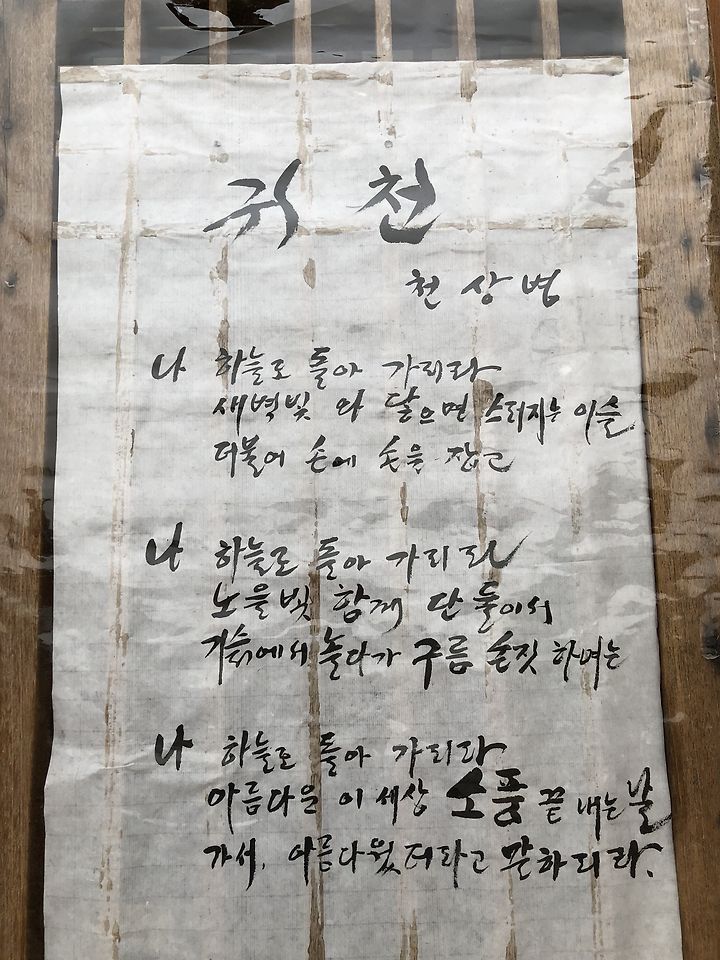 귀천
천상병
나 하늘로 돌아 가리라
새벽빛 와 닿으면 스러지는 이슬
더불어 손에 손을 잡고
나 하늘로 돌아 가리라
노을빛 함께 단 둘이서
기슭에서 놀다가 구름 손짓 하며는
나 하늘로 돌아 가리라
아름다운 이 세상 소풍 끝 내는 날
가서, 아름다웠더라고 말하리라.